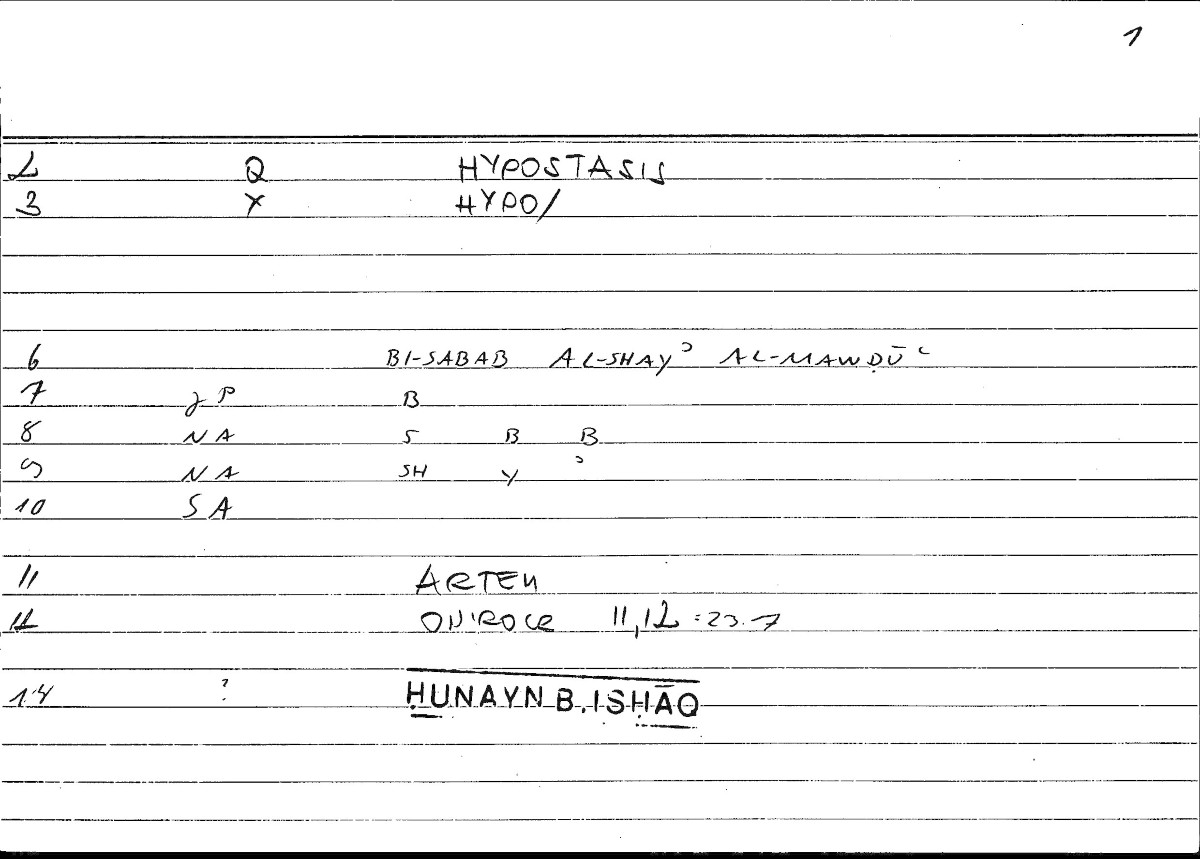 1
2 Q HYPOSTASIS
3 X HYPO/
6 BI-SABAB AL-SHAYʾ AL-MAWḌŪʿ
7 JP B
8 NA S B B
9 NA SH Y ʾ
10 SA
11 ARTEM
12 ONIROCR 11,12 :23.7
14 ? ḤUNAYN B. ISḤĀQ